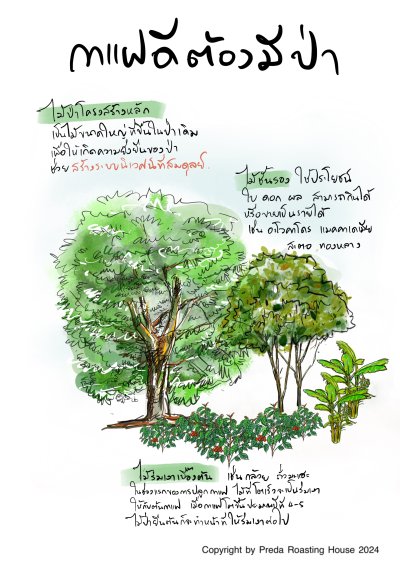 กาแฟดีต้องมีป่า
ไม้ป่าโครงสร้างหลัก
เป็นไม้ขนาดใหญ่ ที่ขึ้นในป่าเดิม
เพื่อให้เกิดความยั่งยืนของป่า
ช่วย สร้างระบบนิเวศน์ที่สมดุลย์.
ไม้ชั้นรอง ใช้ประโยชน์
ใบ ดอก ผล สามารถกินได้
หรือขายเป็นรายได้
เช่น อโวคาโดร แมคคาเดเมีย
สะตอ ทองหลาง
ไม้ร่มเงาเบื้องต้น เช่น กล้วย ถั่วมะแฮะ
ในช่วงแรกของการปลูกกาแฟ ไม้ที่โตเร็วจะเป็นร่มเงา
ให้กับต้นกาแฟ เมื่อกาแฟโตขึ้นประมาณปีที่ 4-5
ไม้ป่ายืนต้นก็จะทำหน้าที่ให้ร่มเงาต่อไป
Copyright by Preda Roasting House 2024